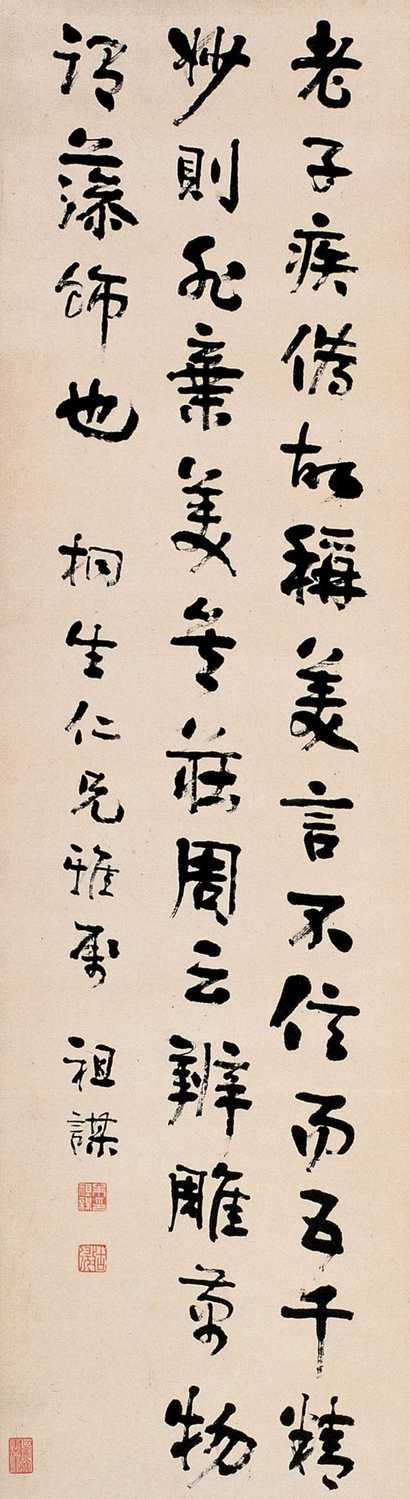 老子疾僞故稱美言不信而五千精
妙則非棄美矣莊周云辨雕萬物
謂藻飾也 桐生仁兄雅屬 祖謀